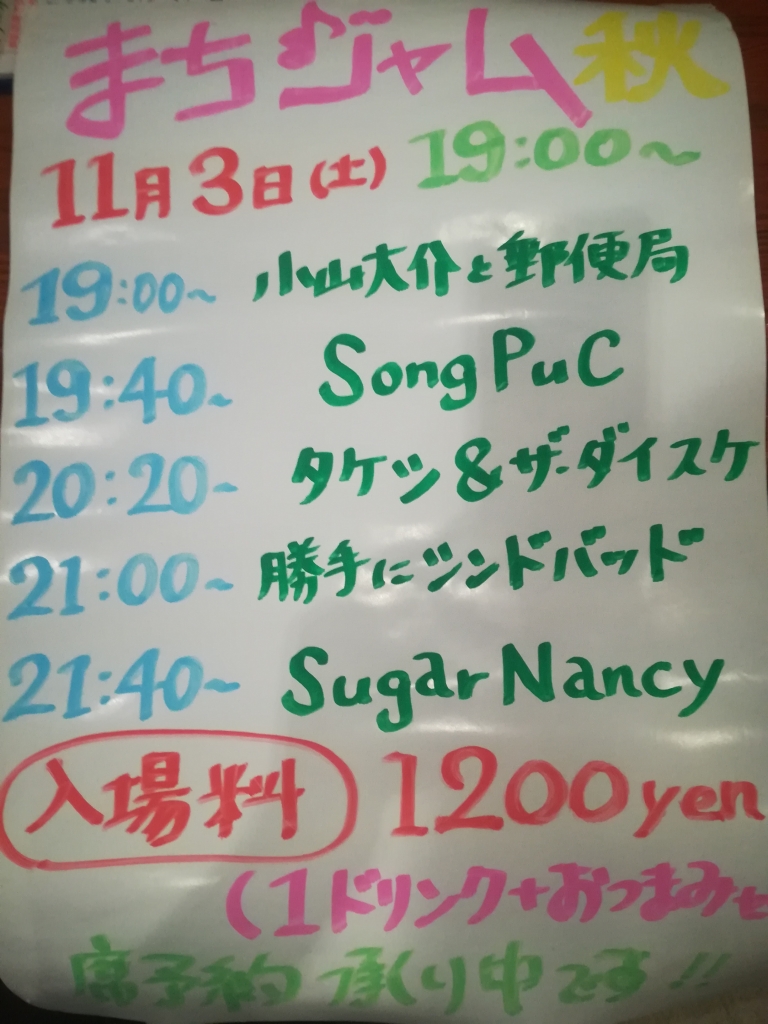 まちジャム秋
11月3日(土) 19:00~
19:00~ 小山大介と郵便局
19:40~ Song PuC
20:20~ タケツ&ザ・ダイスケ
21:00~ 勝手にツンドバッド
21:40~ Sugar Nancy
入場料 1200yen
(1ドリンク+おつまみセ
席予約 承り中です!!